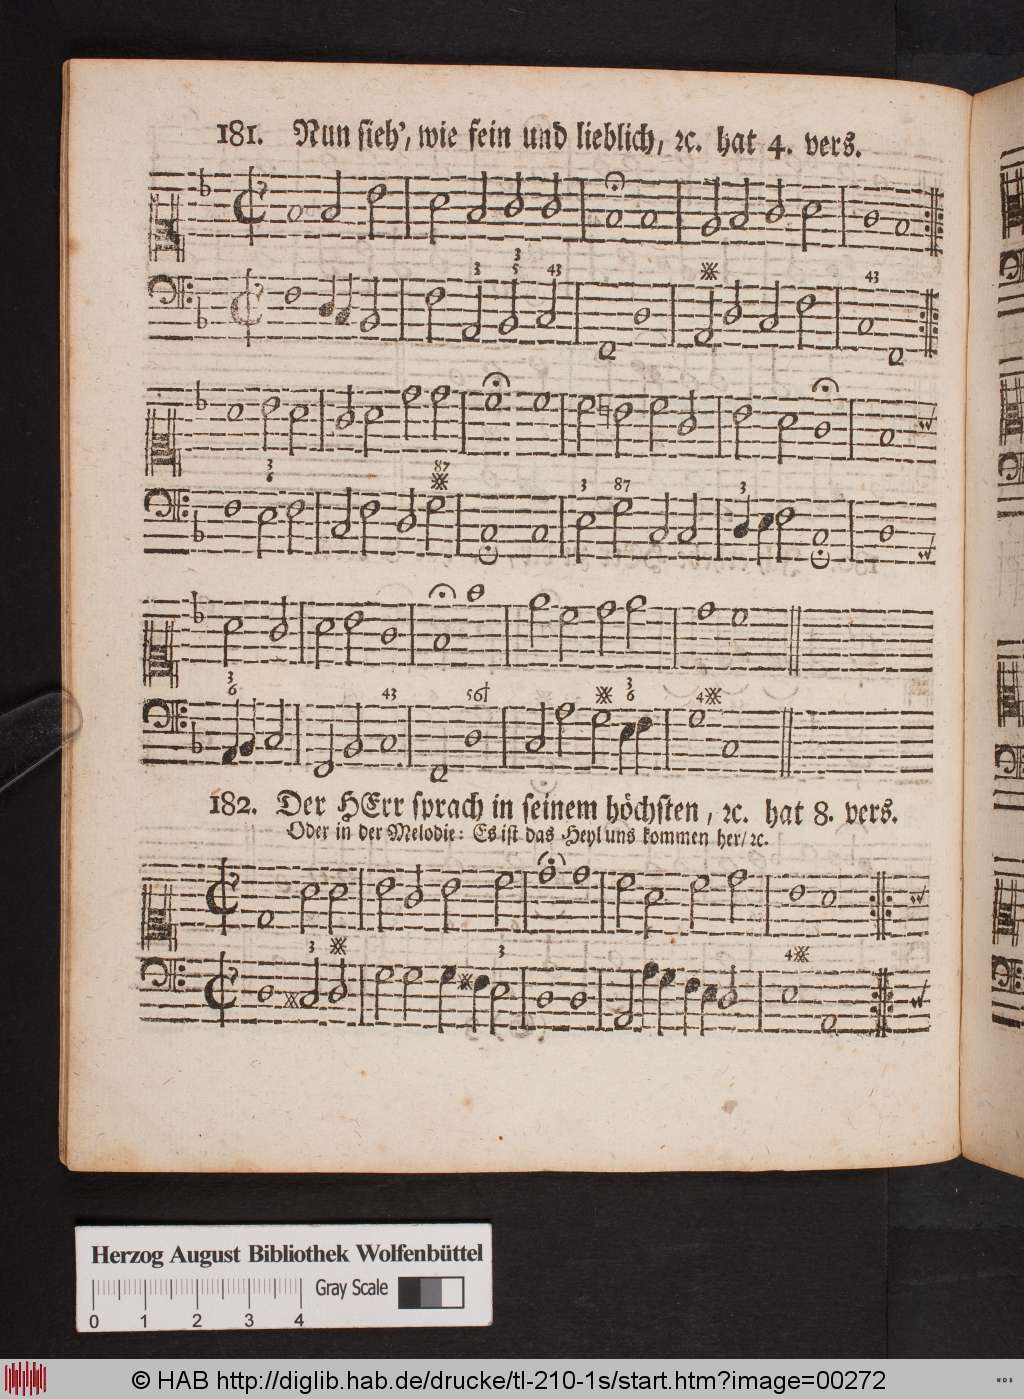 181. Nun sieh', wie fein und lieblich, ꝛc. hat 4. vers.
3 3 5 43 43
3 6 87 3 87 3
3 6 43 56† 3 6 4
182. Der HErr sprach in seinem höchsten, ꝛc. hat 8. vers.
Oder in der Melodie: Es ist das Heyl uns kommen her/ ꝛc.
3 3 4
Herzog August Bibliothek Wolfenbüttel
Gray Scale
0 1 2 3 4
© HAB http://diglib.hab.de/drucke/tl-210-1s/start.htm?image=00272